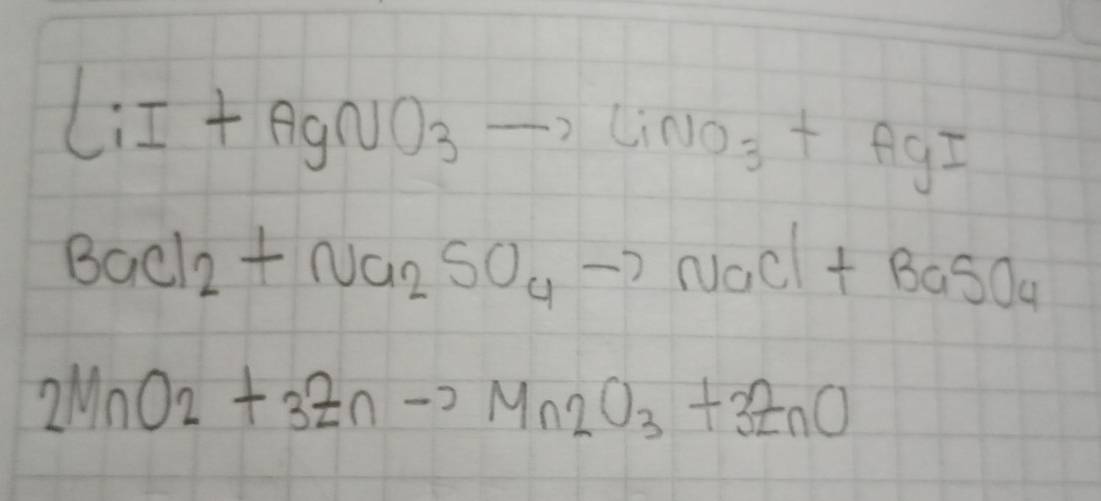 LiI + AgNO₃ → LiNO₃ + AgI
BaCl₂ + Na₂SO₄ → NaCl + BaSO₄
2MnO₂ + 3Zn → Mn₂O₃ + 3ZnO